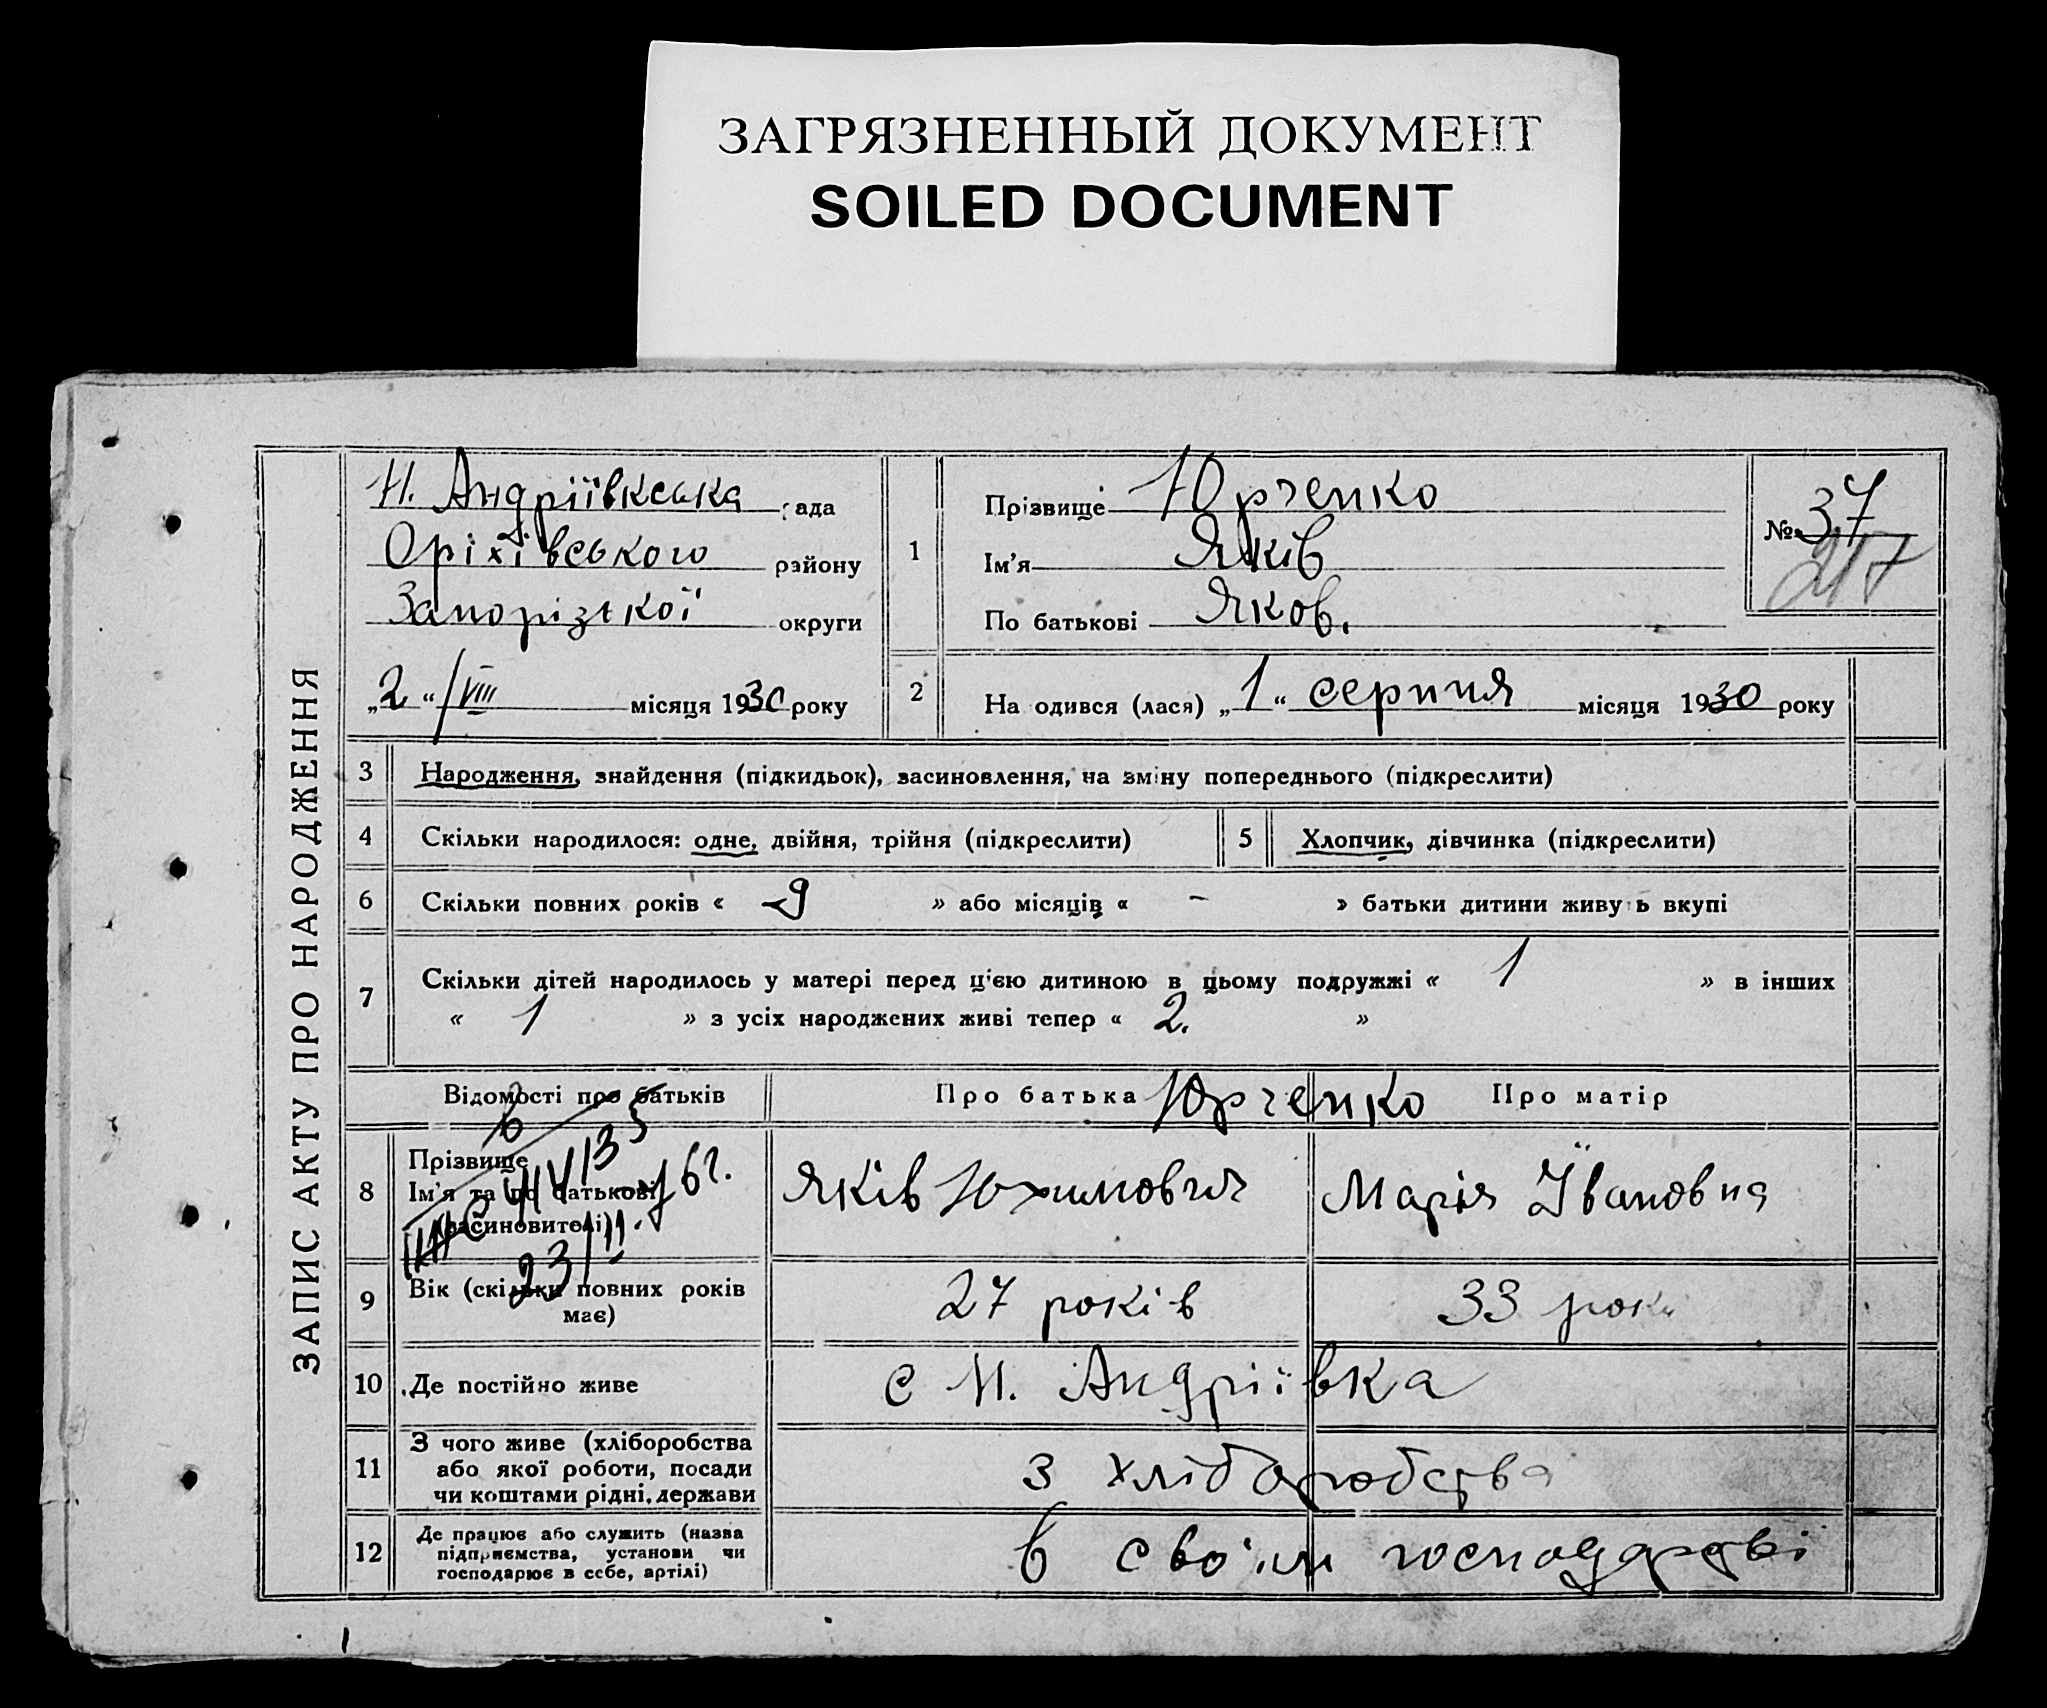 ЗАГРЯЗНЕННЫЙ ДОКУМЕНТ
SOILED DOCUMENT
ЗАПИС АКТУ ПРО НАРОДЖЕННЯ
Н. Андріївкська рада
Оріхівського району
Запорізької округи
„2“ VIII місяця 1930 року
1
Прізвище Юрченко
Ім'я Яків
По батькові Яков.
№ 37
217
2
На одився (лася) „1“ серпня місяця 1930 року
3 Народження, знайдення (підкидьок), засиновлення, на зміну попереднього (підкреслити)
4 Скільки народилося: одне, двійня, трійня (підкреслити) 5 Хлопчик, дівчинка (підкреслити)
6 Скільки повних років « 9 » або місяців « - » батьки дитини живу ь вкупі
7 Скільки дітей народилось у матері перед ц'єю дитиною в цьому подружжі « 1 » в інших
« 1 » з усіх народжених живі тепер « 2. »
Відомості про батьків Про батька Юрченко Про матір
8 Прізвище
Ім'я та по батькові
(засиновителі)
Яків Юхимович Марія Івановна
23/II
9 Вік (скільки повних років
має)
27 років 33 роки
10 Де постійно живе с Н. Андріївка
11 З чого живе (хліборобства
або якої роботи, посади
чи коштами рідні, держави
з хліборобства
12 Де працює або служить (назва
підприємства, установи чи
господарює в себе, артілі)
в своїм господарстві